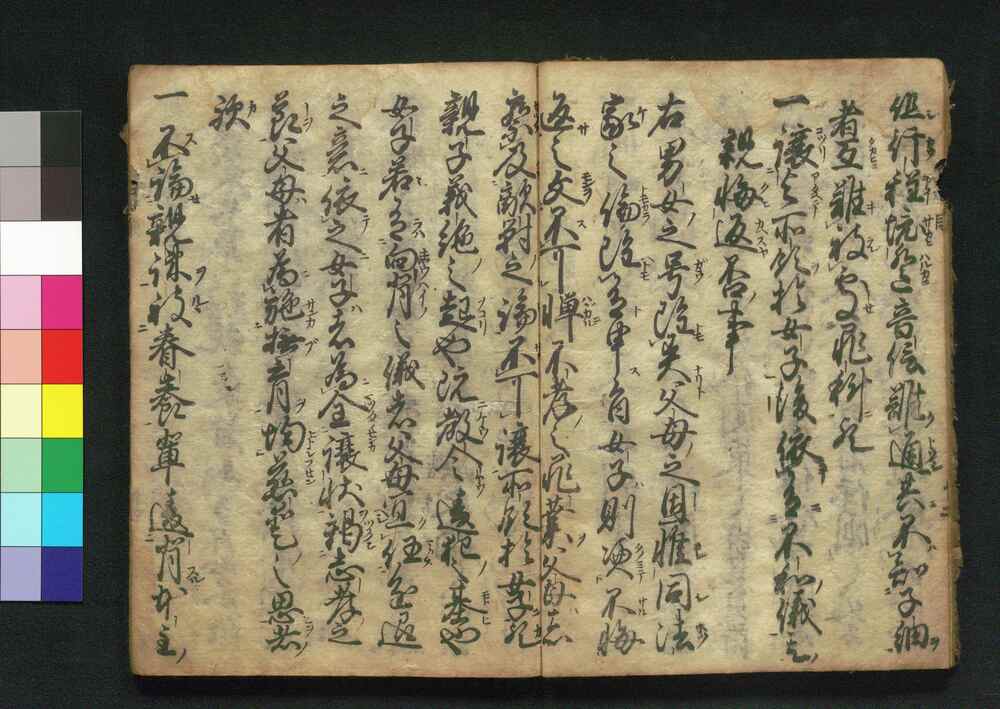 但行程境遥音信難通共不知子細
者互難被処罪科歟
一讓与所領於女子後依有不和儀其
親悔返否事
右男女之号雖異父母之恩惟同法
家之倫雖有申旨女子則憑不悔
返之文不可憚不孝之罪業父母亦
察及敵対之論不可讓所領於女子歟
親子義絶之起也既教令違犯之基也
女子若有向背之儀者父母宜任進退
之意依之女子者為全讓状竭忠孝之
節父母者為施撫育均慈愛之思者
歟
一不論親疎被眷養輩違背本主